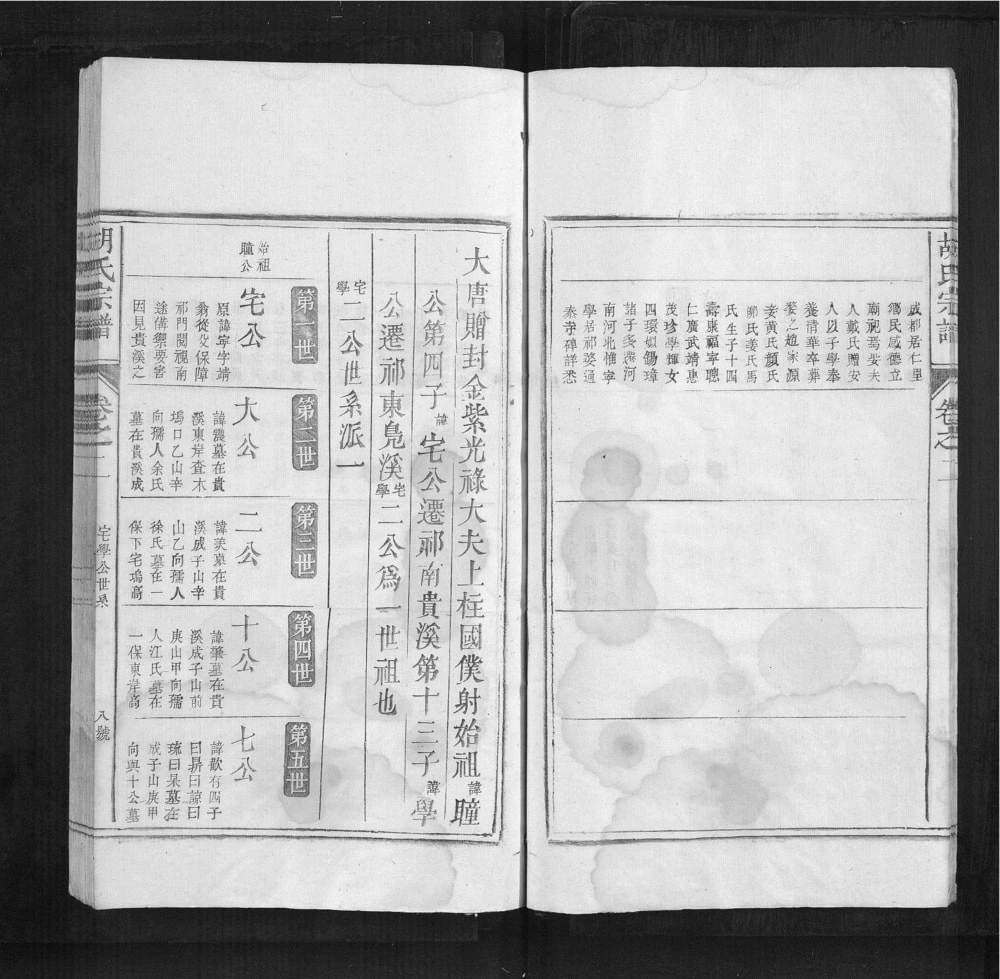 胡氏宗譜
卷之二
成都居仁里
鄉民感德立
廟祀焉娶夫
人戴氏贈安
人以子學奉
養清華卒葬
婺之趙家源
妾黃氏顏氏
鄭氏姜氏馬
氏生子十四
壽康福寧聰
仁廣武靖惠
茂珍學輝女
四環娟錫璋
諸子長港河
南河北惟寧
學居祁婺通
泰寺碑詳悉
大唐贈封金紫光祿大夫上柱國僕射始祖諱瞳
公第四子諱宅公遷祁南貴溪第十三子諱學
公遷祁東鳧溪宅學二公爲一世祖也
宅學二公世系派一
第一世
始祖瞳公
宅公
原諱寧字靖
翁從父保障
祁門閱視南
途備禦要害
因見貴溪之
第二世
大公
諱震墓在貴
溪東岸查木
塢口乙山辛
向孺人余氏
墓在貴溪成
第三世
二公
諱美墓在貴
溪成子山辛
山乙向孺人
徐氏墓在一
保下宅塢高
第四世
十公
諱肇墓在貴
溪成子山前
庚山甲向孺
人江氏墓在
一保東岸高
第五世
七公
諱歡有四子
曰昪曰諒曰
琉曰杲墓在
成子山庚甲
向與十公墓
胡氏宗譜
卷之二
宅學公世系
八號